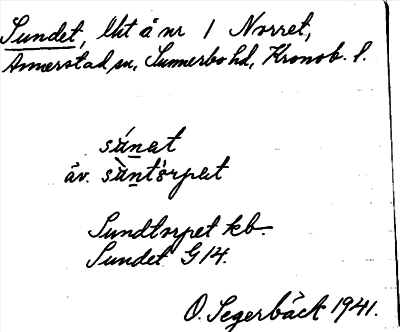 Sundet, lht å nr 1 Norret,
Annerstad sn, Sunnerbo hd, Kronob. l.
súnat
äv. sùntòrpat
Sundtorpet kb.
Sundet G 14.
O. Segerbäck 1941.